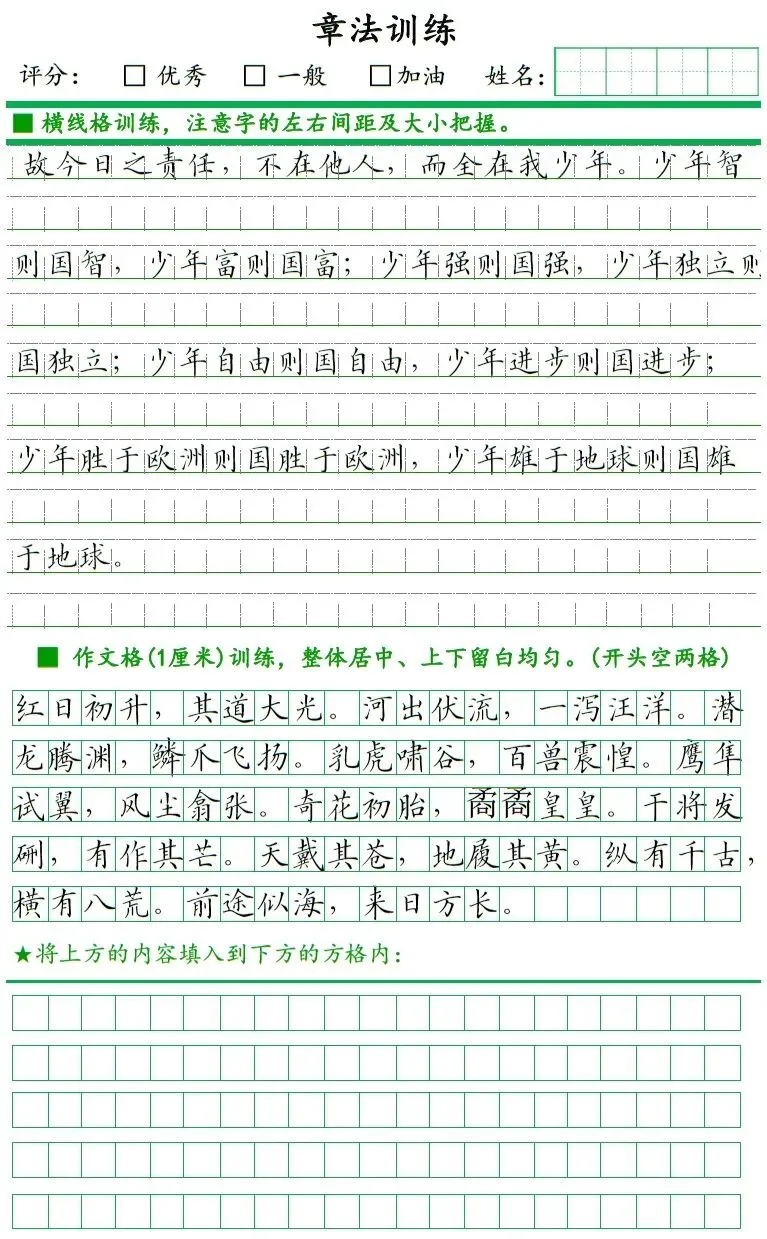 章法训练
评分： □ 优秀 □ 一般 □加油 姓名：
■ 横线格训练，注意字的左右间距及大小把握。
故今日之责任，不在他人，而全在我少年。少年智
则国智，少年富则国富；少年强则国强，少年独立则
国独立；少年自由则国自由，少年进步则国进步；
少年胜于欧洲则国胜于欧洲，少年雄于地球则国雄
于地球。
■ 作文格(1厘米)训练，整体居中、上下留白均匀。(开头空两格)
红日初升，其道大光。河出伏流，一泻汪洋。潜
龙腾渊，鳞爪飞扬。乳虎啸谷，百兽震惶。鹰隼
试翼，风尘翕张。奇花初胎，矞矞皇皇。干将发
硎，有作其芒。天戴其苍，地履其黄。纵有千古，
横有八荒。前途似海，来日方长。
★将上方的内容填入到下方的方格内：